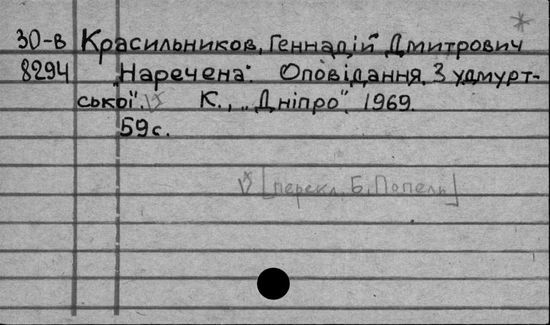 30-в Красильников, Геннадій Дмитрович
8294 „Наречена". Оповідання. З удмурт-
ської". К., „Дніпро", 1969.
59 с.
[перекл. Б.